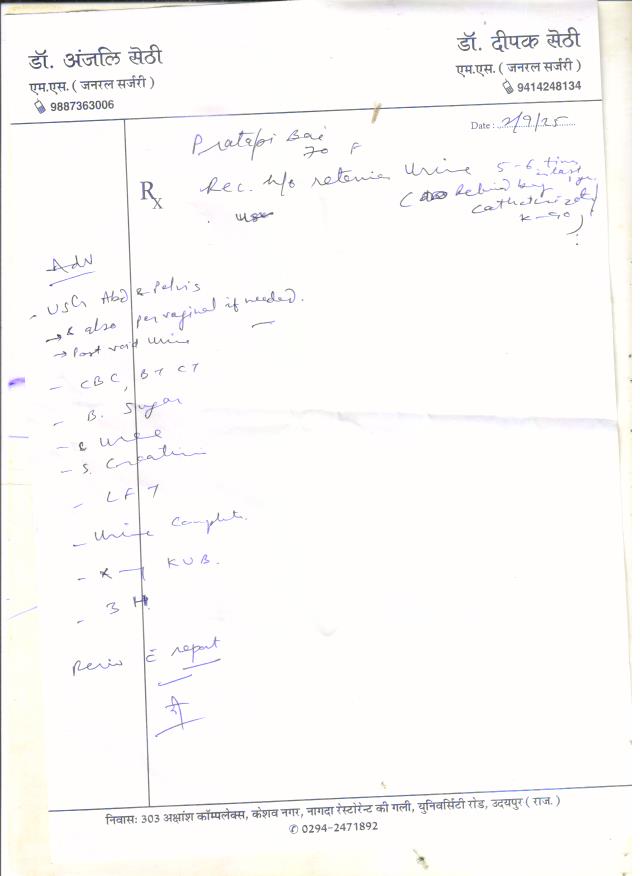 डॉ. अंजलि सेठी
एम.एस. ( जनरल सर्जरी )
9887363006
डॉ. दीपक सेठी
एम.एस. ( जनरल सर्जरी )
9414248134
Date : 2/9/25
Pratapi Bai
70 F
Rx
Rec. h/o retension Urine 5-6 times
in last yr.
( Relived by
Catheterized
)
Adv
- USG Abd & Pelvis
→ & also per vaginal if needed.
→ Post void Urine
- CBC, BT CT
- B. Sugar
- Urea
- S. Creatinin
- LFT
- Urine Complete
- X-ray KUB.
- 3 H
Review c̄ report
निवासः 303 अक्षांश कॉम्पलेक्स, केशव नगर, नागदा रेस्टोरेन्ट की गली, युनिवर्सिटी रोड, उदयपुर ( राज. )
✆ 0294-2471892